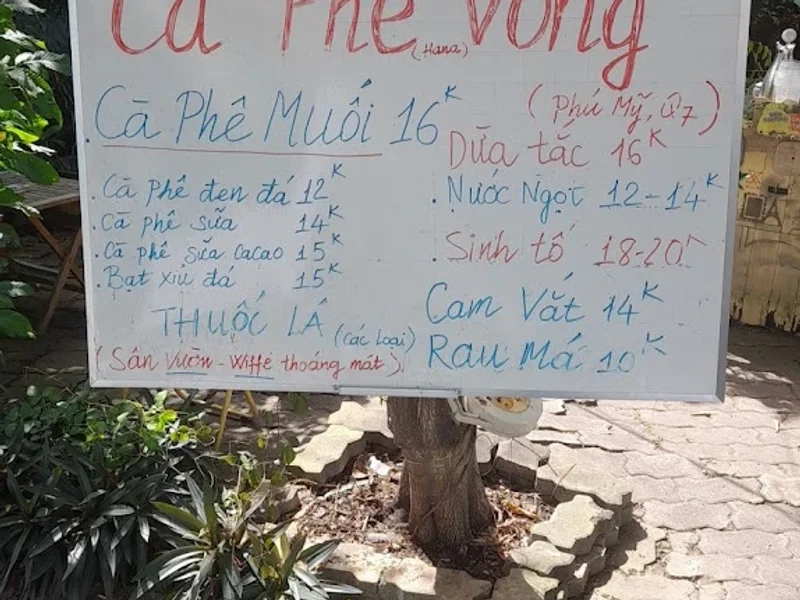 Cà Phê Võng
(Hana)
Cà Phê Muối 16K
. Cà phê đen đá 12K
. Cà phê sữa 14K
. Cà phê sữa cacao 15K
. Bạt xỉu đá 15K
THUỐC LÁ (các loại)
(Sân Vườn - Wiffe thoáng mát).
(Phú Mỹ, Q7)
Dừa tắc 16K
. Nước Ngọt 12-14K
. Sinh tố 18-20K
Cam Vắt 14K
Rau Má 10K